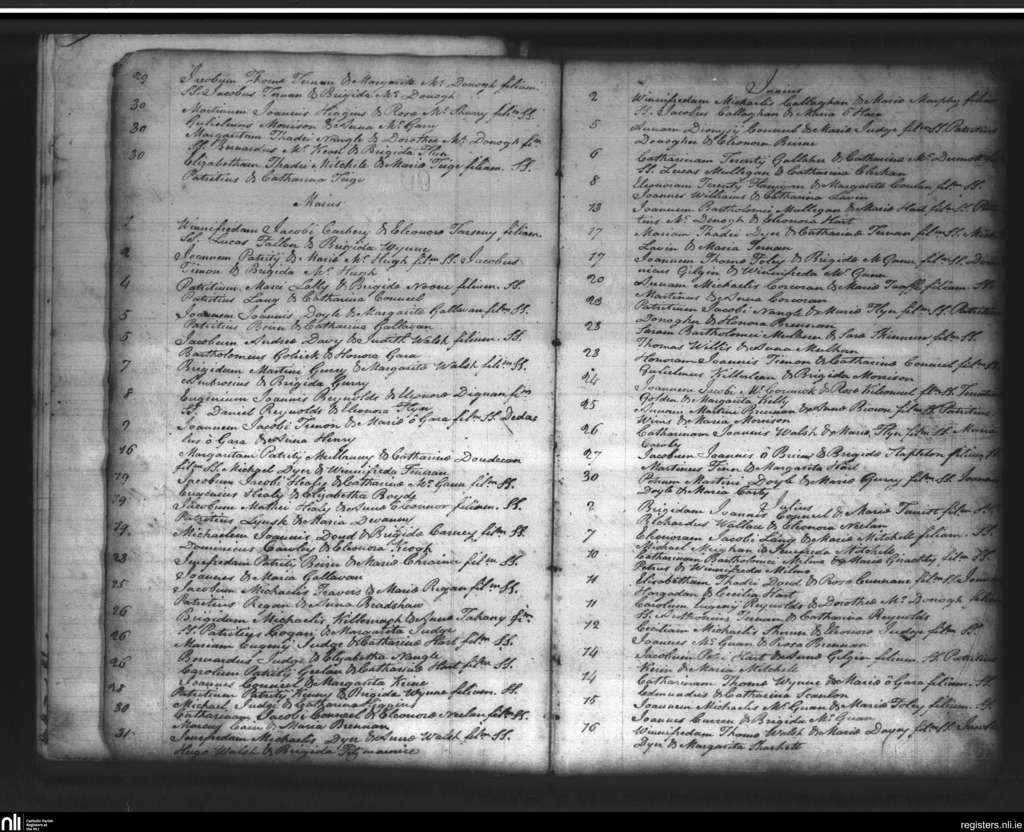 29 Jacobum Thomæ Ternan & Margaritæ Mc Donogh filium.
SS. Jacobus Ternan & Brigida Mc Donogh
30 Martinum Joannis Higgins & Rosæ Mc Sharry filiu SS.
Gulielmus Morrison & Anna Mc Gary
30 Margaritam Thadei Nangle & Dorotheæ Mc Donogh filam
SS. Bernardus Mc Keon & Brigida
30 Elizabetham Thadei Mitchele & Mariæ Feige filiam. SS.
Patritius & Catharina Feige
Maius
1 Winnifredam Jacobi Carbery & Eleonoræ filiam.
SS. Lucas Fallon & Brigida Wynne
2 Joannem Patritij & Mariæ Mc Hugh filum SS. Jacobus
Timon & Brigida Mc Hugh
4 Patritium Marci Lally & Brigidæ Noone filium. SS.
Patritius Lang & Catharina Conneel
5 Joannem Joannis Doyle & Margaritæ Gallavan filum SS.
Patritius Beirn & Catharina Gallavan
5 Jacobum Andreæ Davy & Judith Walsh filium. SS.
Bartholomeus Gosick & Honora Gara
7 Brigidam Martini Gurry & Margaritæ Walsh filam SS.
Ambrosius & Brigida Gurry
8 Eugenium Joannis Reynolds & Eleonoræ Dignan filum
SS. Daniel Reynolds & Eleonora Flyn
9 Joannem Jacobi Timon & Mariæ ó Gara filum SS. Deda=
lus ó Gara & Anna Henry
16 Margaritam Patritij Mullanny & Catharinæ Doudecan
filam SS. Michael Dyer & Winnifreda Fineran
17 Jacobum Jacobi Healy & Catharinæ Mc Gann filum SS.
Eugenius Healy & Elizabetha Boyde
19 Jacobum Mathei Healy & Annæ ó Connor filium. SS.
Patritius Lynsk & Maria Devanny
19 Michaelem Joannis Doud & Brigidæ Carney filum SS.
Dominicus Cawley & Eleonora Keogh
23 Winefredam Patritij Beirn & Mariæ filam SS.
Joannes & Maria Gallavan
25 Jacobum Michaelis Travers & Mariæ Regan filum SS.
Patritius Regan & Anna Bradshaw
26 Brigidam Michaelis & Annæ Tahany filam
SS. Patritius Cogan & Margarita Judge
26 Mariam Eugenij Judge & Catharinæ Hart filam SS.
Bernardus Judge & Elizabetha Nangle
26 Carolum Patritij & Catharinæ Hart filum SS.
Joannes & Margarita Keine
28 Patritium Patritij Kenny & Brigidæ Wynne filium. SS.
Michael Judge & Catharina Higgins
30 Catharinam Jacobi Conneel & Eleonoræ Neelan filam SS.
Marcus Cain & Maria Brennan
31 Winefredam Michaelis Dyer & Annæ Walsh filam SS.
Hugo Walsh & Brigida Fitzmaurice
Junius
2 Winnifredam Michaelis Callaghan & Mariæ Murphy filiam
SS. Jacobus Callaghan & Maria ó Hara
5 Annam Dionysij Conneel & Mariæ Judge filam SS. Patritius
Donogher & Eleonora Beirne
6 Catharinam Terentij Gallaher & Catharinæ Mc Dermott
SS. Lucas Mulligan & Catharina
8 Eleonoram Terentij & Margaritæ Conlan filam SS.
Joannes Williams & Catharina Lavin
13 Joannem Bartholomei Mulligan & Mariæ Hart filum SS. Patri
tius Mc Donogh & Eleonora Hart
17 Mariam Thadei Dyer & Catharinæ Ternan filam SS.
Lavin & Maria Ternan
17 Joannem Thomæ Foley & Brigidæ Mc Gann filum SS. Domi
nicus Gilgin & Winnifreda Mc Gann
20 Annam Michaelis Corcoran & Mariæ Taaffe filiam. SS.
Martinus & Anna Corcoran
23 Patritium Jacobi Nangle & Mariæ Flyn filum SS. Patritius
Donogher & Honora Brennan
23 Saram Bartholomei & Saræ Skinnion filam SS.
Thomas Willis & Anna
23 Honoram Joannis Timon & Catharinæ Conneel filam SS.
Gulielmus Killalean & Brigida Morrison
24 Joannem Jacobi Mc Cormick & Rosæ filum SS.
Golden & Margarita Kelly
25 Annam Martini Brennan & Annæ Brown filam SS. Patritius
Wims & Maria Morrison
26 Catharinam Joannis Walsh & Mariæ Flyn filam SS. Maria
Cawly
27 Jacobum Joannis ó Brien & Brigidæ Stapleton filium SS.
Martinus Finn & Margarita Hart
30 Petrum Martini Doyle & Mariæ Gurry filum SS. Joannes
Doyle & Maria Carty
Julius
2 Brigidam Joannis Conneel & Mariæ filam SS.
Richardus Wallace & Eleonora Neelan
7 Eleonoram Jacobi Lang & Mariæ Mitchele filiam. SS.
Michael Meighan & Winefreda Mitchele
10 Catharinam Bartholomei Milmo & Mariæ Geraghty filam SS.
Petrus & Winnifreda Milmo
11 Elisabetham Thadei Doud & Rosæ Cunnane filam SS.
Hargadan & Cecilia Hart
11 Carolum Eugenij Reynolds & Dorotheæ Mc Donogh filium
SS. Ternan & Catharina Reynolds
12 Ceciliam Michaelis & Eleonoræ Judge filam SS.
Joannes Mc Guan & Rosa Brennan
14 Jacobum Pat. Hart & Annæ Gilgin filium. SS. Patritius
Kevin & Maria Mitchele
14 Catharinam Thomæ Wynne & Mariæ ó Gara filiam. SS.
Edmundus & Catharina Scanlon
15 Joannem Michaelis Mc Guan & Mariæ Foley filium. SS.
Joannes Curren & Brigida Mc Guan
16 Winnifredam Thomæ Walsh & Mariæ Davey filam SS.
Dyer & Margarita Sharkett
nli Catholic Parish
Registers at
the NLI
registers.nli.ie